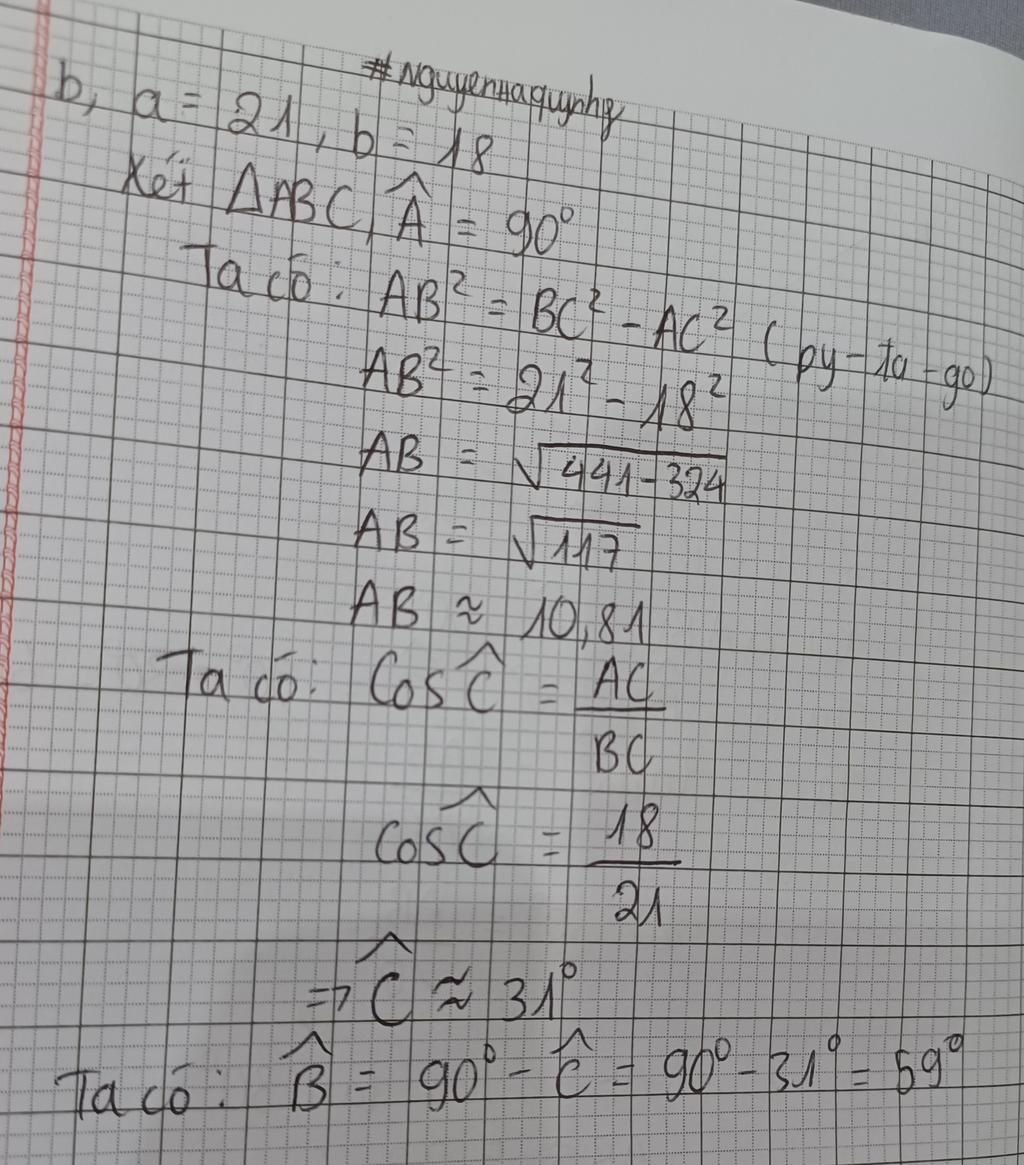 #nguyenHaquynhg
b, a = 21, b = 18
Xét ΔABC, Â = 90°
Ta có: AB² = BC² - AC² (py-ta-go)
AB² = 21² - 18²
AB = √441-324
AB = √117
AB ≈ 10,81
Ta có: Cos Ĉ = AC/BC
Cos Ĉ = 18/21
=> Ĉ ≈ 31°
Ta có: B̂ = 90° - Ĉ = 90° - 31° = 59°